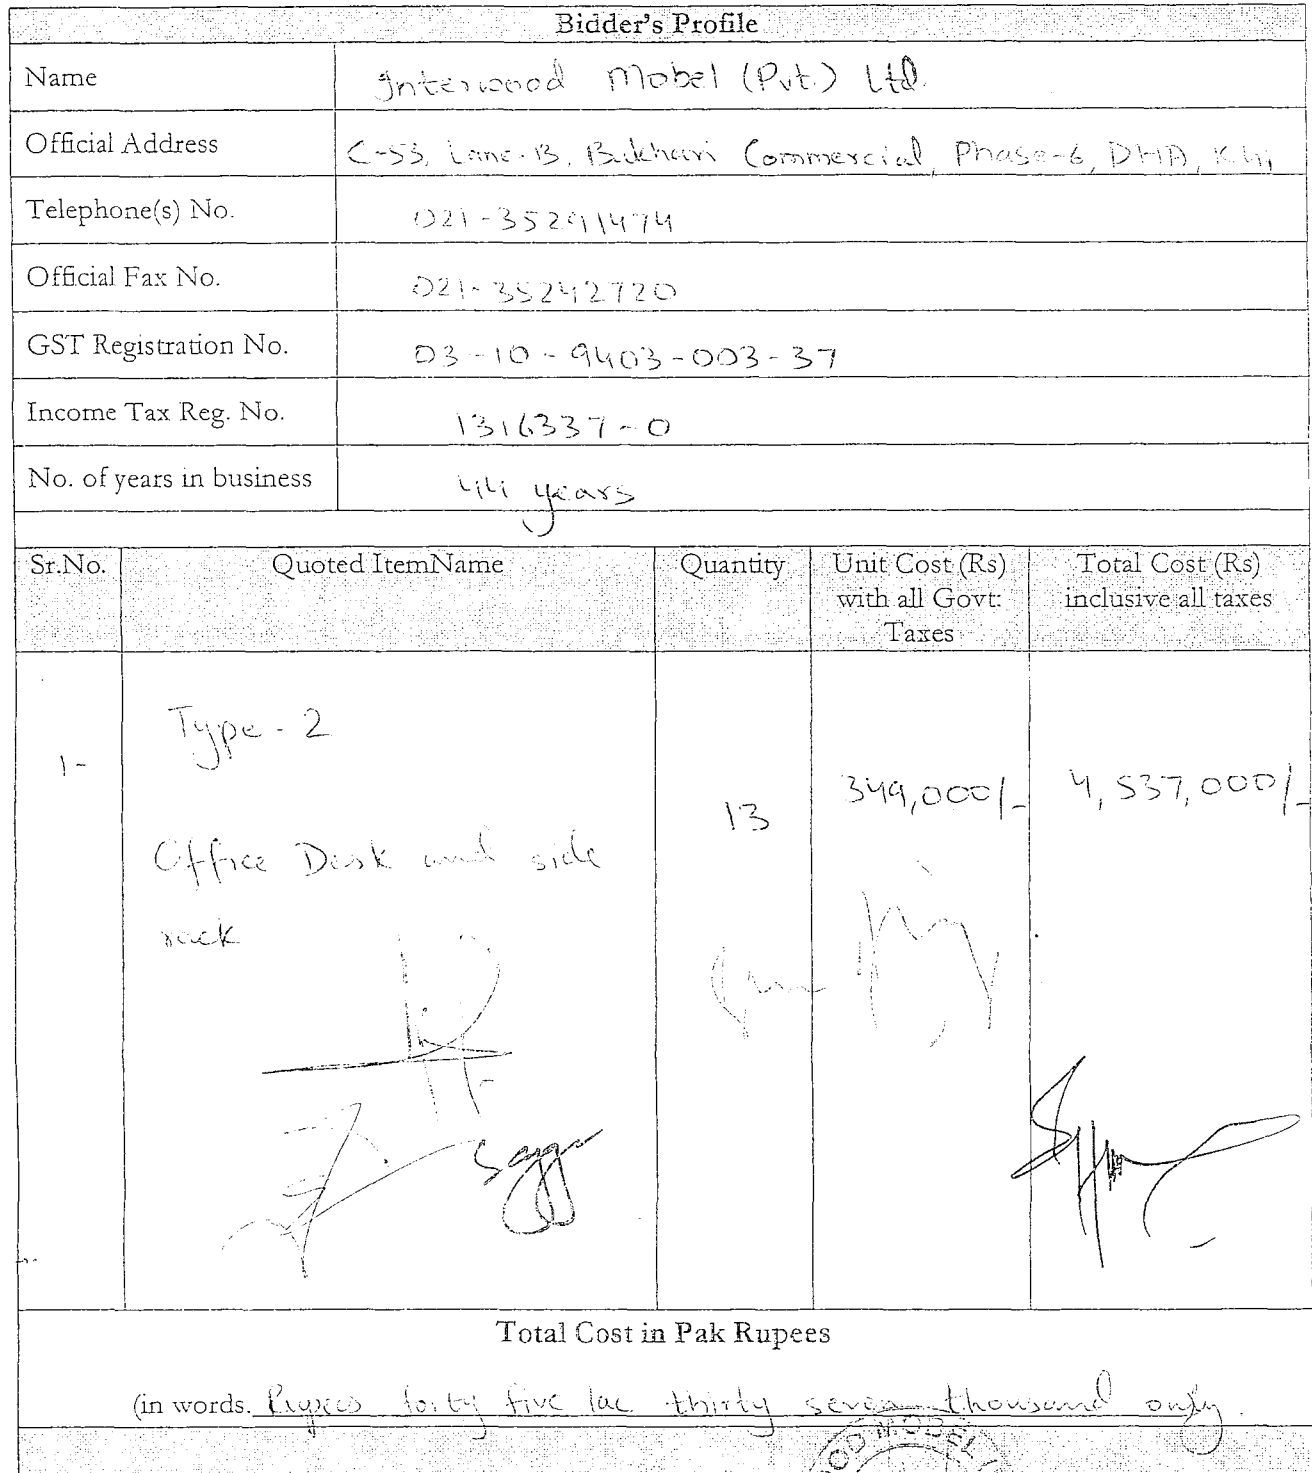 Bidder's Profile
Name Interwood Mobel (Pvt.) Ltd.
Official Address C-53, Lane-13, Bukhari Commercial, Phase-6, DHA, Khi
Telephone(s) No. 021-35291474
Official Fax No. 021-35242720
GST Registration No. 03-10-9403-003-37
Income Tax Reg. No. 1316337-0
No. of years in business 44 years
Sr.No. Quoted ItemName Quantity Unit Cost (Rs) Total Cost (Rs)
with all Govt: inclusive all taxes
Taxes
Type - 2
1- 13 349,000/- 4,537,000/-
Office Desk and side
rack
Total Cost in Pak Rupees
(in words. Rupees forty five lac thirty seven thousand only.
OOD MOBEL